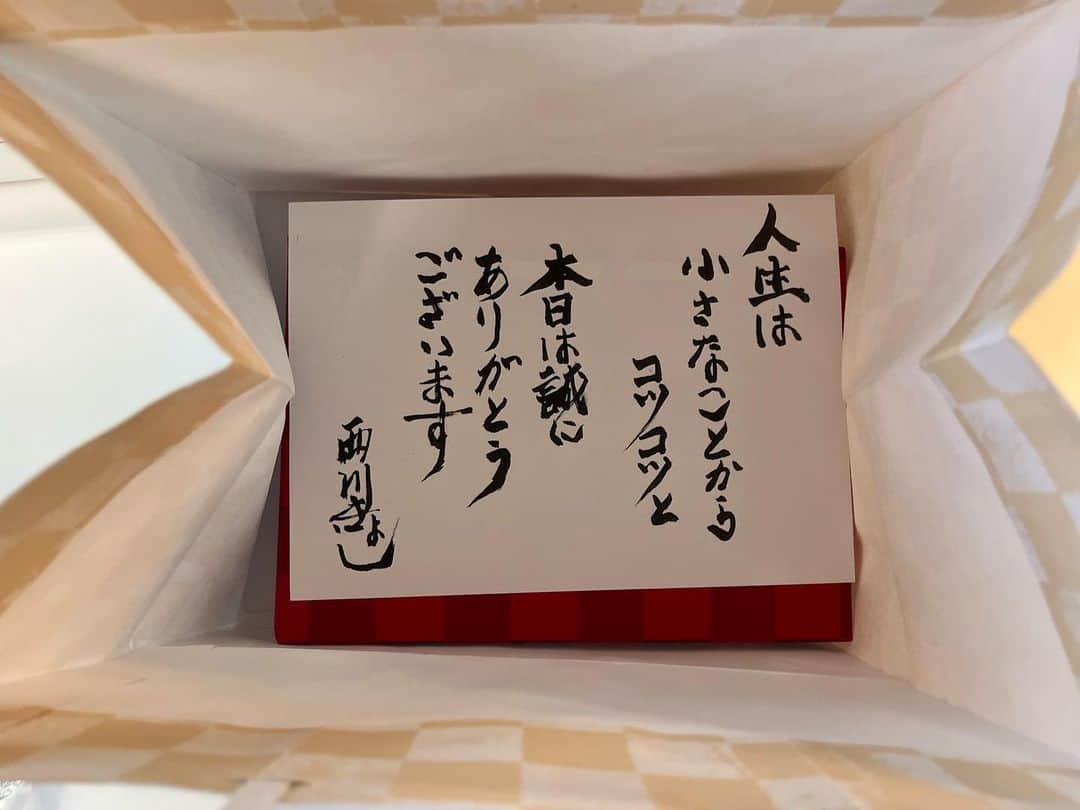 人生は
小さなことから
コツコツと
本日は誠に
ありがとう
ございます
西川きよし